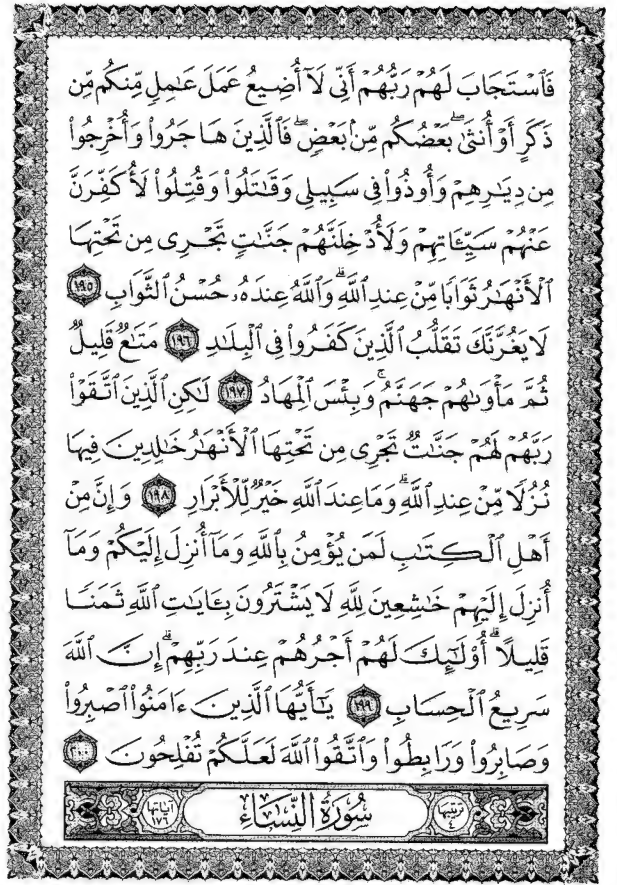 فَٱسْتَجَابَ لَهُمْ رَبُّهُمْ أَنِّي لَآ أُضِيعُ عَمَلَ عَٰمِلٖ مِّنكُم مِّن
ذَكَرٍ أَوْ أُنثَىٰۖ بَعْضُكُم مِّنۢ بَعْضٖۖ فَٱلَّذِينَ هَاجَرُوا۟ وَأُخْرِجُوا۟
مِن دِيَٰرِهِمْ وَأُوذُوا۟ فِي سَبِيلِي وَقَٰتَلُوا۟ وَقُتِلُوا۟ لَأُكَفِّرَنَّ
عَنْهُمْ سَيِّـَٔاتِهِمْ وَلَأُدْخِلَنَّهُمْ جَنَّٰتٖ تَجْرِي مِن تَحْتِهَا
ٱلْأَنْهَٰرُ ثَوَابٗا مِّنْ عِندِ ٱللَّهِۗ وَٱللَّهُ عِندَهُۥ حُسْنُ ٱلثَّوَابِ ١٩٥
لَا يَغُرَّنَّكَ تَقَلُّبُ ٱلَّذِينَ كَفَرُوا۟ فِي ٱلْبِلَٰدِ ١٩٦ مَتَٰعٞ قَلِيلٞ
ثُمَّ مَأْوَىٰهُمْ جَهَنَّمُۚ وَبِئْسَ ٱلْمِهَادُ ١٩٧ لَٰكِنِ ٱلَّذِينَ ٱتَّقَوْا۟
رَبَّهُمْ لَهُمْ جَنَّٰتٞ تَجْرِي مِن تَحْتِهَا ٱلْأَنْهَٰرُ خَٰلِدِينَ فِيهَا
نُزُلٗا مِّنْ عِندِ ٱللَّهِۗ وَمَا عِندَ ٱللَّهِ خَيْرٞ لِّلْأَبْرَارِ ١٩٨ وَإِنَّ مِنْ
أَهْلِ ٱلْكِتَٰبِ لَمَن يُؤْمِنُ بِٱللَّهِ وَمَآ أُنزِلَ إِلَيْكُمْ وَمَآ
أُنزِلَ إِلَيْهِمْ خَٰشِعِينَ لِلَّهِ لَا يَشْتَرُونَ بِـَٔايَٰتِ ٱللَّهِ ثَمَنٗا
قَلِيلًاۗ أُو۟لَٰٓئِكَ لَهُمْ أَجْرُهُمْ عِندَ رَبِّهِمْۗ إِنَّ ٱللَّهَ
سَرِيعُ ٱلْحِسَابِ ١٩٩ يَٰٓأَيُّهَا ٱلَّذِينَ ءَامَنُوا۟ ٱصْبِرُوا۟
وَصَابِرُوا۟ وَرَابِطُوا۟ وَٱتَّقُوا۟ ٱللَّهَ لَعَلَّكُمْ تُفْلِحُونَ ٢٠٠
ترتيبها ٤ سُورَةُ النِّسَاءِ آياتها ١٧٦